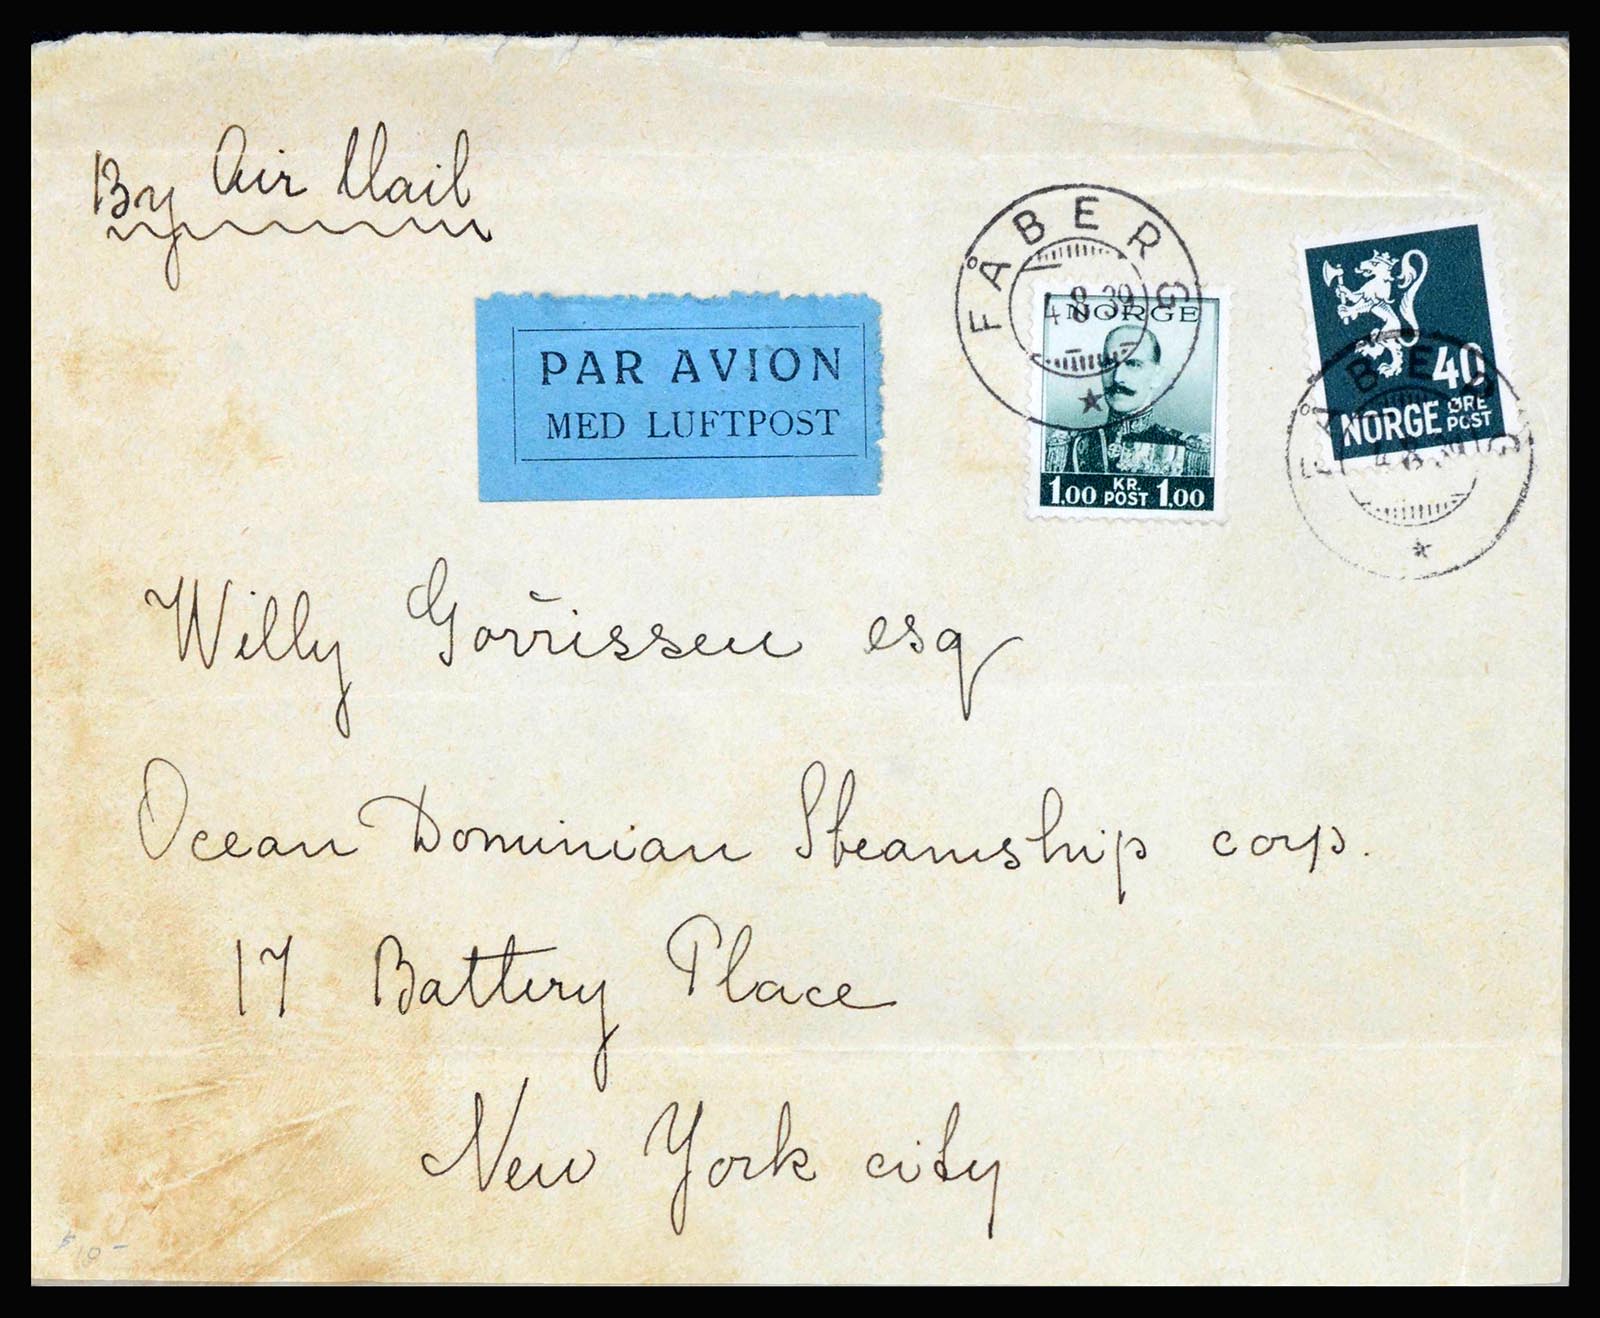 By Air Mail
PAR AVION
MED LUFTPOST
FÅBERG
4 8 39
NORGE
1,00 KR. POST 1,00
40
NORGE ØRE POST
FÅBERG
4 8 39
Willy Gorrissen esq
Ocean Dominian Steamship corp.
17 Battery Place
New York city
$ 10 -